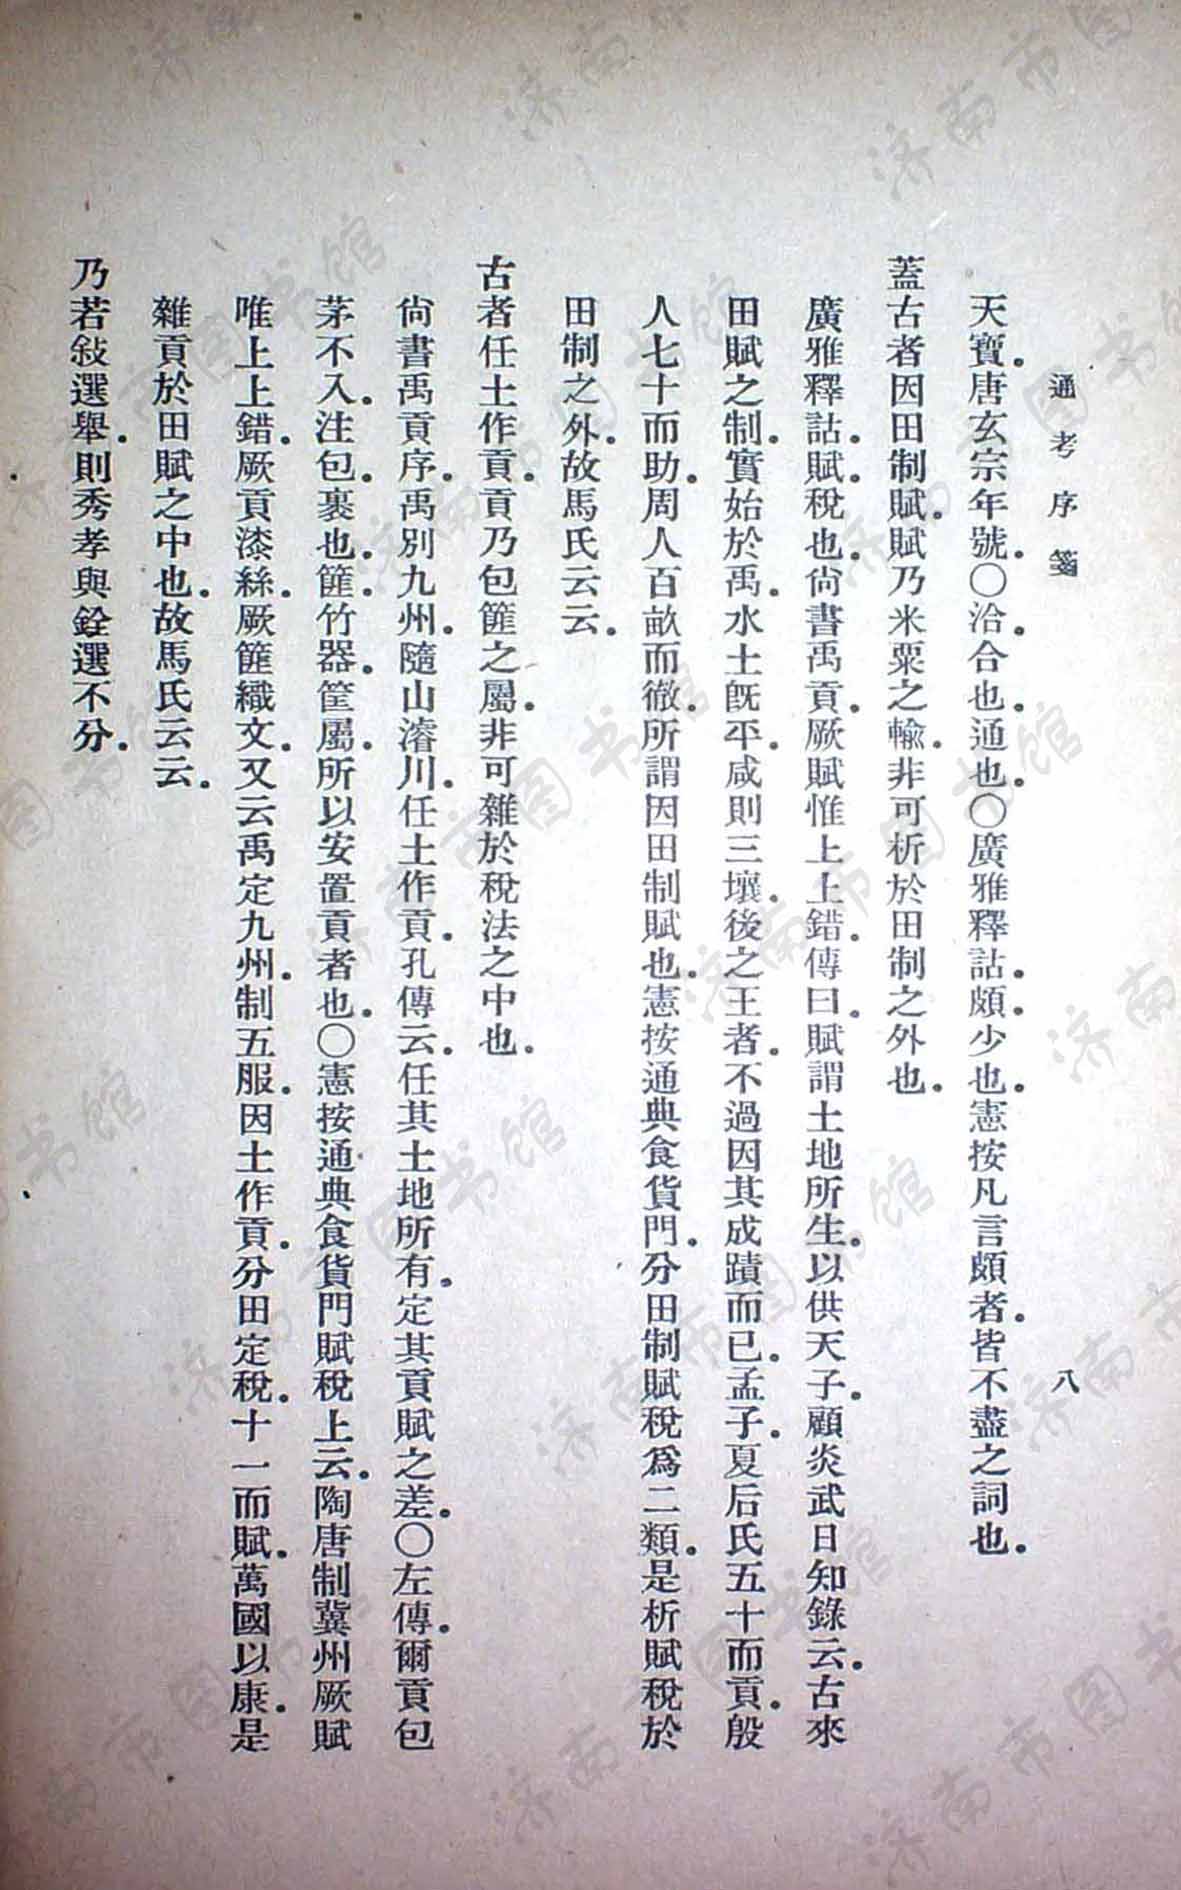 通考序箋　八
天寶。唐玄宗年號。〇洽。合也。通也。〇廣雅釋詁。頗。少也。憲按凡言頗者。皆不盡之詞也。
蓋古者因田制賦。賦乃米粟之輸。非可析於田制之外也。
廣雅釋詁。賦。稅也。尙書禹貢。厥賦惟上上錯。傳曰。賦謂土地所生。以供天子。顧炎武日知錄云。古來
田賦之制。實始於禹。水土旣平。咸則三壤。後之王者。不過因其成蹟而已。孟子。夏后氏五十而貢。殷
人七十而助。周人百畝而徹。所謂因田制賦也。憲按通典食貨門。分田制賦稅爲二類。是析賦稅於
田制之外。故馬氏云云。
古者任土作貢。貢乃包篚之屬。非可雜於稅法之中也。
尙書禹貢序。禹別九州。隨山濬川。任土作貢。孔傳云。任其土地所有。定其貢賦之差。〇左傳。爾貢包
茅不入。注。包。裹也。篚。竹器。筐屬。所以安置貢者也。〇憲按通典食貨門賦稅上云。陶唐制冀州厥賦
唯上上錯。厥貢漆絲。厥篚織文。又云禹定九州。制五服。因土作貢。分田定稅。十一而賦。萬國以康。是
雜貢於田賦之中也。故馬氏云云。
乃若敍選舉。則秀孝與銓選不分。
济南市图书馆